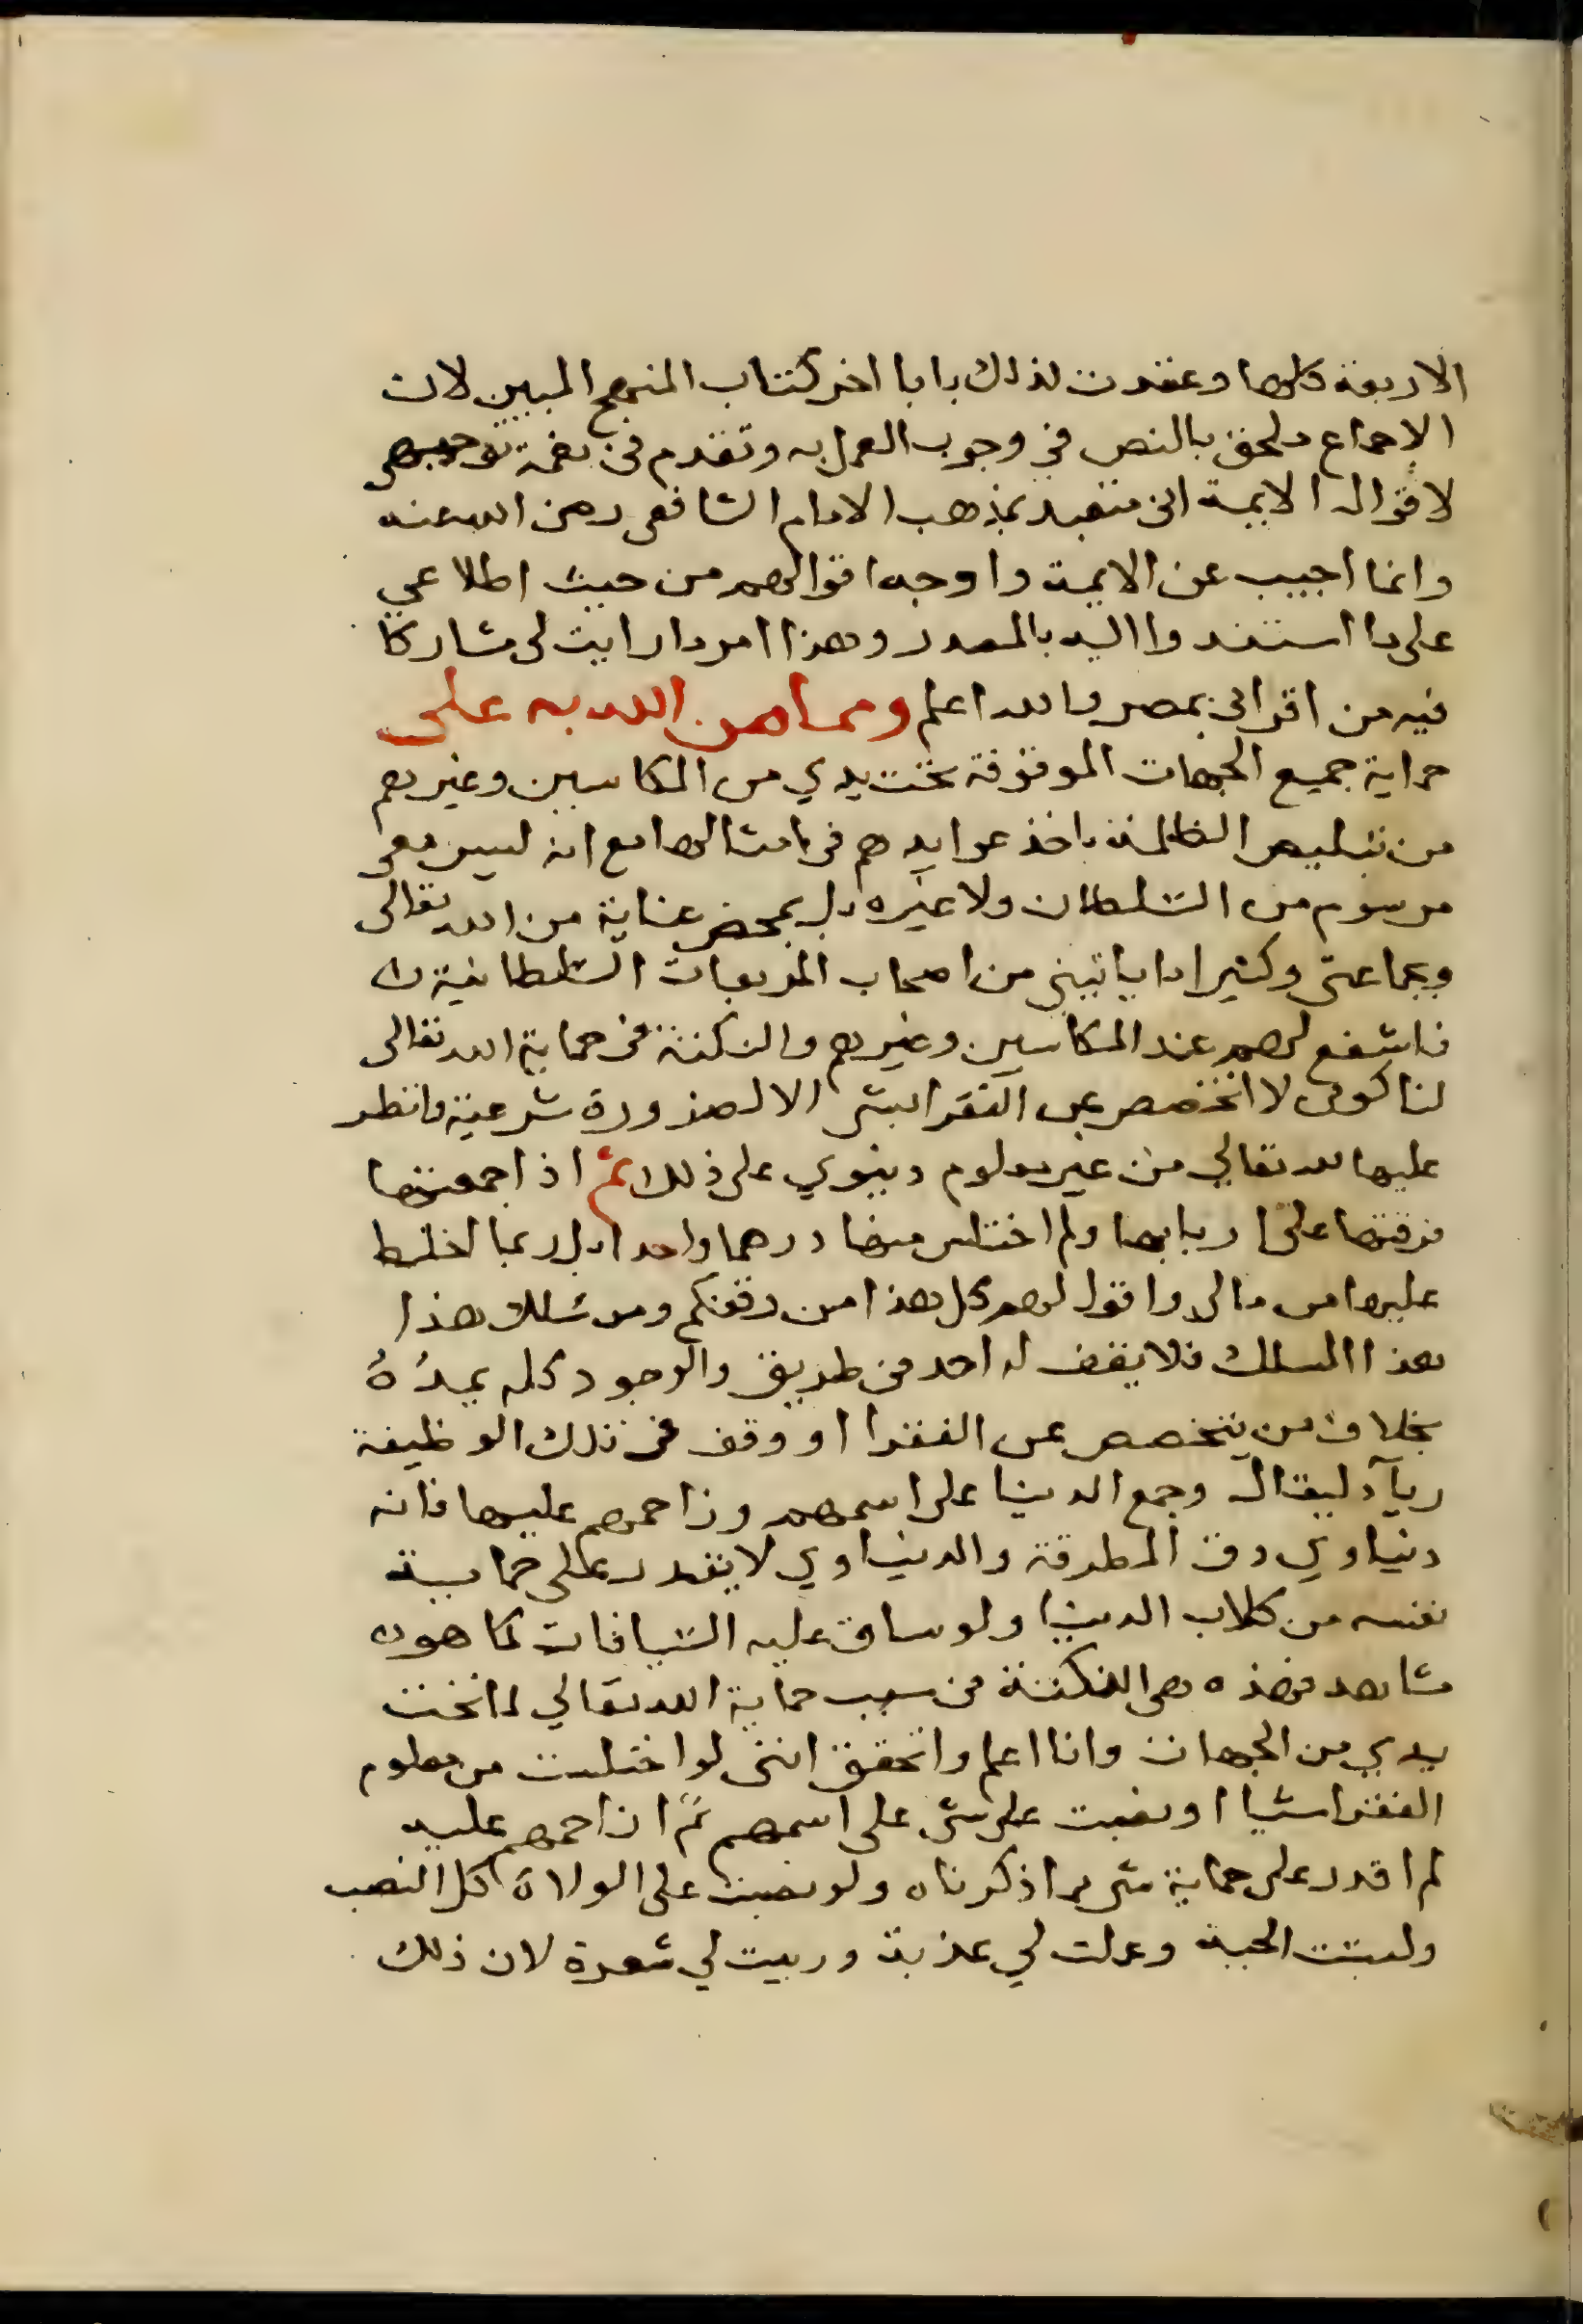 الاربعة كلها وعقدت لذلك بابا اخر كتاب المنهج المبين لان
الاجماع ملحق بالنص في وجوب العمل به وتقدم في نعمة توجيهي
لاقوال الايمة اني متقيد بمذهب الامام الشافعي رضي الله عنه
وانما اجيب عن الايمة واوجه اقوالهم من حيث اطلاعي
على ما استندوا اليه بالصدر وهذا امر ما رايت لي مشاركا
فيه من اقراني بمصر والله اعلم ومما من الله به على
حماية جميع الجهات الموقوفة تحت يدي من المكاسين وغيرهم
من تبليص الظلمة باخذ عوايدهم في امثالها مع انه ليس معي
مرسوم من السلطان ولا غيره بل بمحض عناية من الله تعالى
وبجماعتي وكثيرا ما ياتيني من اصحاب المربعات السلطانية
فاشفع لهم عند المكاسين وغيرهم والنكتة في حماية الله تعالى
لنا كوني لا اتخصص عن الفقرا بشي الا لضرورة شرعية وانظر
عليها لله تعالي من غير معلوم دينوي على ذلك ثم اذا جمعتها
فرقتها على اربابها ولم اختلس منها درهما واحدا بل ربما اخلط
عليها من مالي واقول لهم كل هذا من وقفكم ومن سلك هذا
هذا المسلك فلا يقف له احد في طريق والوجود كله يمده
بخلاف من يتخصص عن الفقرا او وقف في تلك الوظيفة
رياء ليقال وجمع الدنيا على اسمهم وزاحمهم عليها فانه
دنياوي دق المطرقة والدنياوي لا يقدر على حماية
نفسه من كلاب الدنيا ولو ساق عليه السياقات كما هو
مشاهد فهذه هي النكتة في سبب حماية الله تعالي لما تحت
يدي من الجهات وانا اعلم واتحقق انني لو اختلست من معلوم
الفقرا شيا او نصبت على شي على اسمهم ثم ازاحمهم عليه
لم اقدر على حماية شي مما ذكرناه ولو نصبت على الولاة كل النصب
ولبست الجبة وعملت لي عذبة وربيت لي شعرة لان ذلك